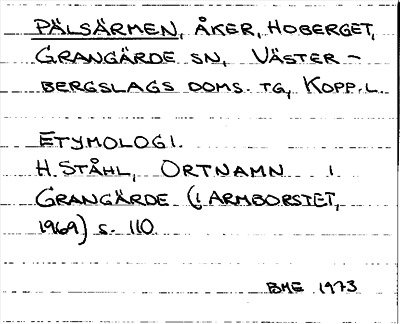 PÄLSÄRMEN, ÅKER, HOBERGET,
GRANGÄRDE SN, VÄSTER-
BERGSLAGS DOMS. TG, KOPP. L.
ETYMOLOGI.
H. STÅHL, ORTNAMN I
GRANGÄRDE (I ARMBORSTET,
1969) S. 110
BME 1973